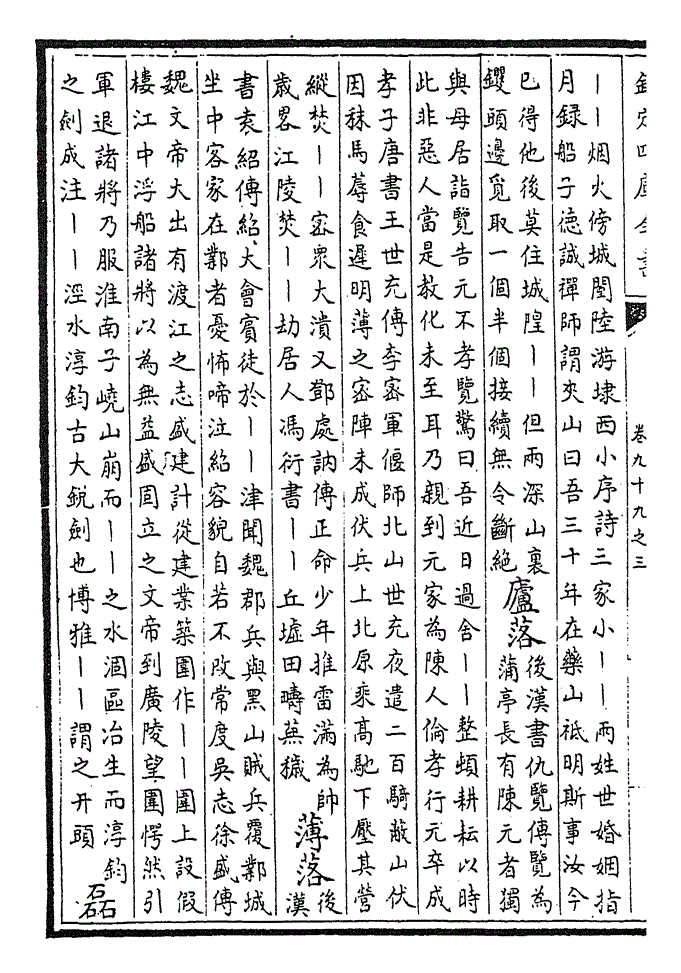 欽定四庫全書
卷九十九之三
丨丨烟火傍城閭陸游埭西小序詩三家小丨丨兩姓世婚姻指
月録船子德誠禪師謂夾山曰吾三十年在藥山祗明斯事汝今
已得他後莫住城隍丨丨但兩深山裏
钁頭邊覓取一個半個接續無令斷絶
廬落
後漢書仇覽傳覽為
蒲亭長有陳元者獨
與母居詣覽告元不孝覽驚曰吾近日過舍丨丨整頓耕耘以時
此非惡人當是教化未至耳乃親到元家為陳人倫孝行元卒成
孝子唐書王世充傳李宻軍偃師北山世充夜遣二百騎蔽山伏
因秣馬蓐食遲明薄之宻陣未成伏兵上北原乘髙馳下壓其營
縱焚丨丨宻衆大潰又鄧處訥傳正命少年推雷滿為帥
歲畧江陵焚丨丨劫居人馮衍書丨丨丘墟田疇蕪穢
薄落
後
漢
書袁紹傳紹大會賓徒於丨丨津聞魏郡兵與黑山賊兵覆鄴城
坐中客家在鄴者憂怖啼泣紹容貌自若不改常度吳志徐盛傳
魏文帝大出有渡江之志盛建計從建業築圍作丨丨圍上設假
樓江中浮船諸將以為無益盛固立之文帝到廣陵望圍愕然引
軍退諸將乃服淮南子嶢山崩而丨丨之水涸區冶生而淳鈞
之劍成注丨丨涇水淳鈞古大銳劍也博雅丨丨謂之幵頭
磊